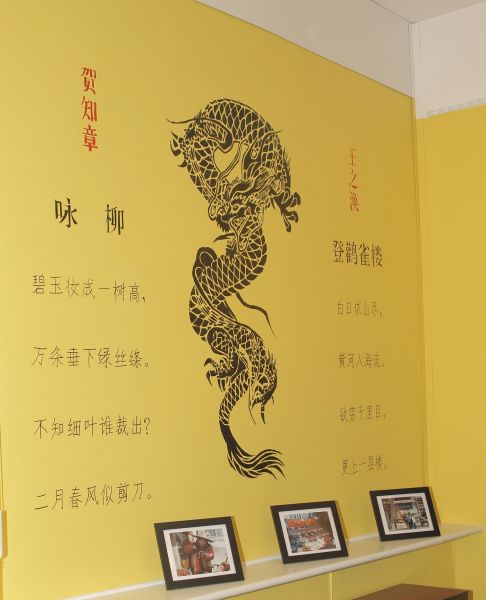 贺知章
咏柳
碧玉妆成一树高，
万条垂下绿丝绦。
不知细叶谁裁出？
二月春风似剪刀。
王之涣
登鹳雀楼
白日依山尽，
黄河入海流。
欲穷千里目，
更上一层楼。